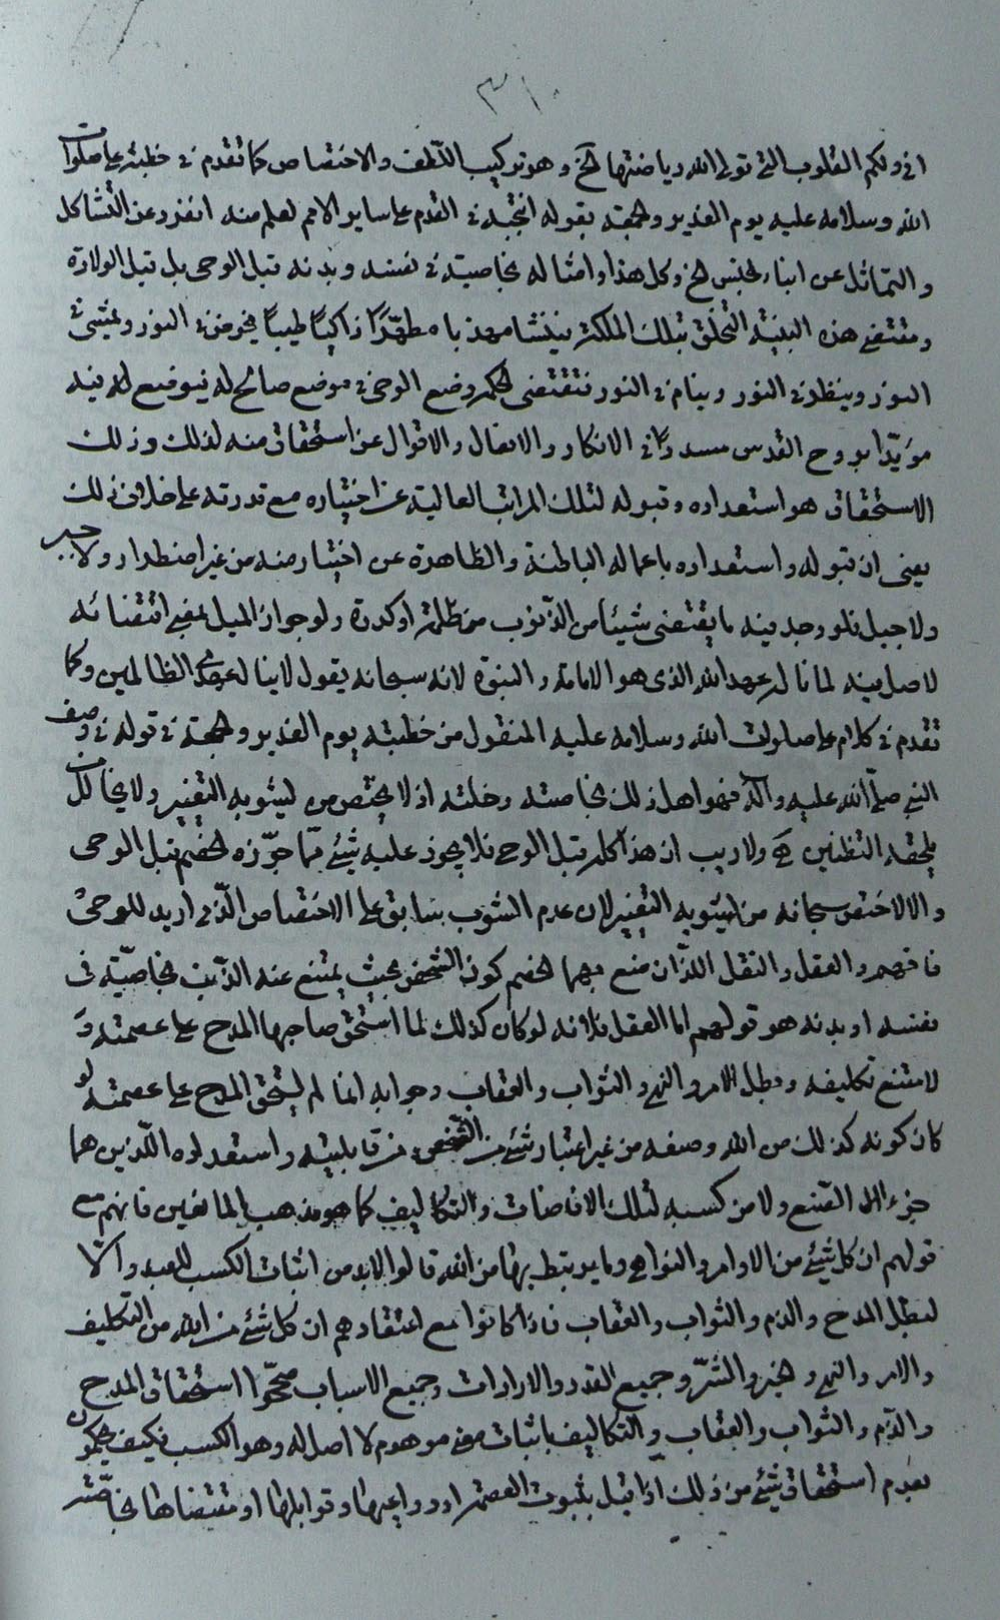 ٣١٠
اني ولكم القلوب التي تولى الله رياضتها الخ وهو تركيب اللطف والاختصاص كما تقدم في خطبة علي صلوات
الله وسلامه عليه يوم الغدير والجمعة بقوله انتجبه في القدم على ساير الامم لعلم منه انفرد عن التشاكل
والتماثل عن ابناء الجنس الخ وكل هذا وامثاله بخاصية في نفسه وبدنه قبل الوحى بل قبل الولادة
ومقتضى هذه البنية التخلق بتلك الملكة فينشا مهذبا مطهّرًا زاكيًا طيبًا يخوض في النور ويمشي في
النور وينظر في النور وينام في النور فتقتضى الحكمة وضع الوحى في موضع صالح له فيوضع له فيه
مؤيّدا بروح القدس مسددًا في الافكار والافعال والاقوال عن استحقاق منه لذلك وذلك
الاستحقاق هو استعداده وقبوله لتلك المراتب العالية عن اختياره مع قدرته على خلاف ذلك
يعنى ان قبوله واستعداده باعماله الباطنة والظاهرة عن اختيار منه من غير اضطرار ولا جبر
ولا جبل فلو وجد فيه ما يقتضى شيئا من الذنوب من ظلمة او كدرة ولو جواز الميل بمعنى اقتضائه
لاصل فيه لما ناله عهد الله الذى هو الامامة والنبوة لانه سبحانه يقول لا ينال عهدي الظالمين وكما
تقدم في كلام علي صلوات الله وسلامه عليه المنقول من خطبته يوم الغدير والجمعة في قوله في وصف
النبي صلى الله عليه وآله فهو اهل ذلك بخاصته وخلته اذ لا يختص من يشوبه التغيير ولا يخالل من
يلحقه التظنين هـ ولا ريب ان هذا كله قبل الوحى فلا يجوز عليه شيئ مما جوّزه الخصم قبل الوحى
والا لاختص سبحانه من يشوبه التغيير لان عدم الشوب سابق على الاختصاص الّذي اريد للوحى
فافهم والعقل والنقل اللذان منع بهما الخصم كون الشخص بحيث يمتنع عنه الذنب بخاصيّته في
نفسه او بدنه هو قولهم اما العقل فلانه لو كان كذلك لما استحق صاحبها المدح على عصمته و
لامتنع تكليفه وبطل الامر والنهي والثواب والعقاب وجوابه انما لم يستحق المدح على عصمته لو
كان كونه كذلك من الله وصفه من غير اعتبار شيئ من الشخص من قابليته واستعداده اللّذين هما
جزءا الصنع ولا من كسبه لتلك الافاضات والتكاليف كما هو مذهب المانعين فانهم مع
قولهم ان كل شيئ من الاوامر والنواهي وما يرتبط بها من الله قالوا لابد من اثبات الكسب للعبد والّا
لبطل المدح والذم والثواب والعقاب فاذا كانوا مع اعتقادهم ان كل شيئ من الله من التكليف
والامر والنهي والخير والشرّ وجميع القدر والارادات وجميع الاسباب صحّحوا استحقاق المدح
والذم والثواب والعقاب والتكاليف باثبات معنى موهوم لا اصل له وهو الكسب فكيف يحكمون
بعدم استحقاق شيئ من ذلك اذا قيل بثبوت العصمة او دواعيها وقوابلها او مقتضاها بخاصّته